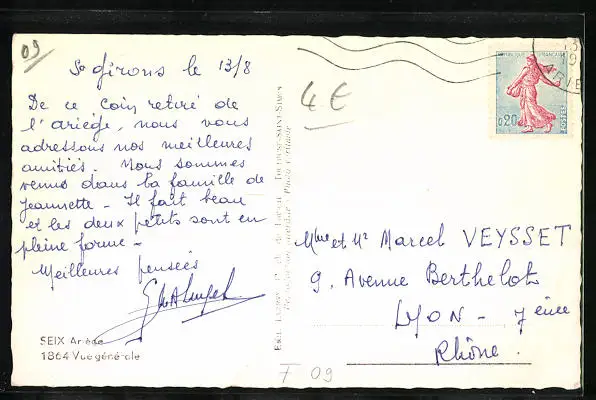 09
St girons le 13/8
De ce coin retiré de
l'ariége, nous vous
adressons nos meilleures
amitiés. Nous sommes
venus dans la famille de
Jeannette - Il fait beau
et les deux petits sont en
pleine forme -
Meilleures pensées
SEIX Ariège
1864 Vue générale
4 €
REPUBLIQUE FRANÇAISE
0,20
POSTES
Mme et Mr Marcel VEYSSET
9. Avenue Berthelot
LYON - 7ème
Rhône.
F 09